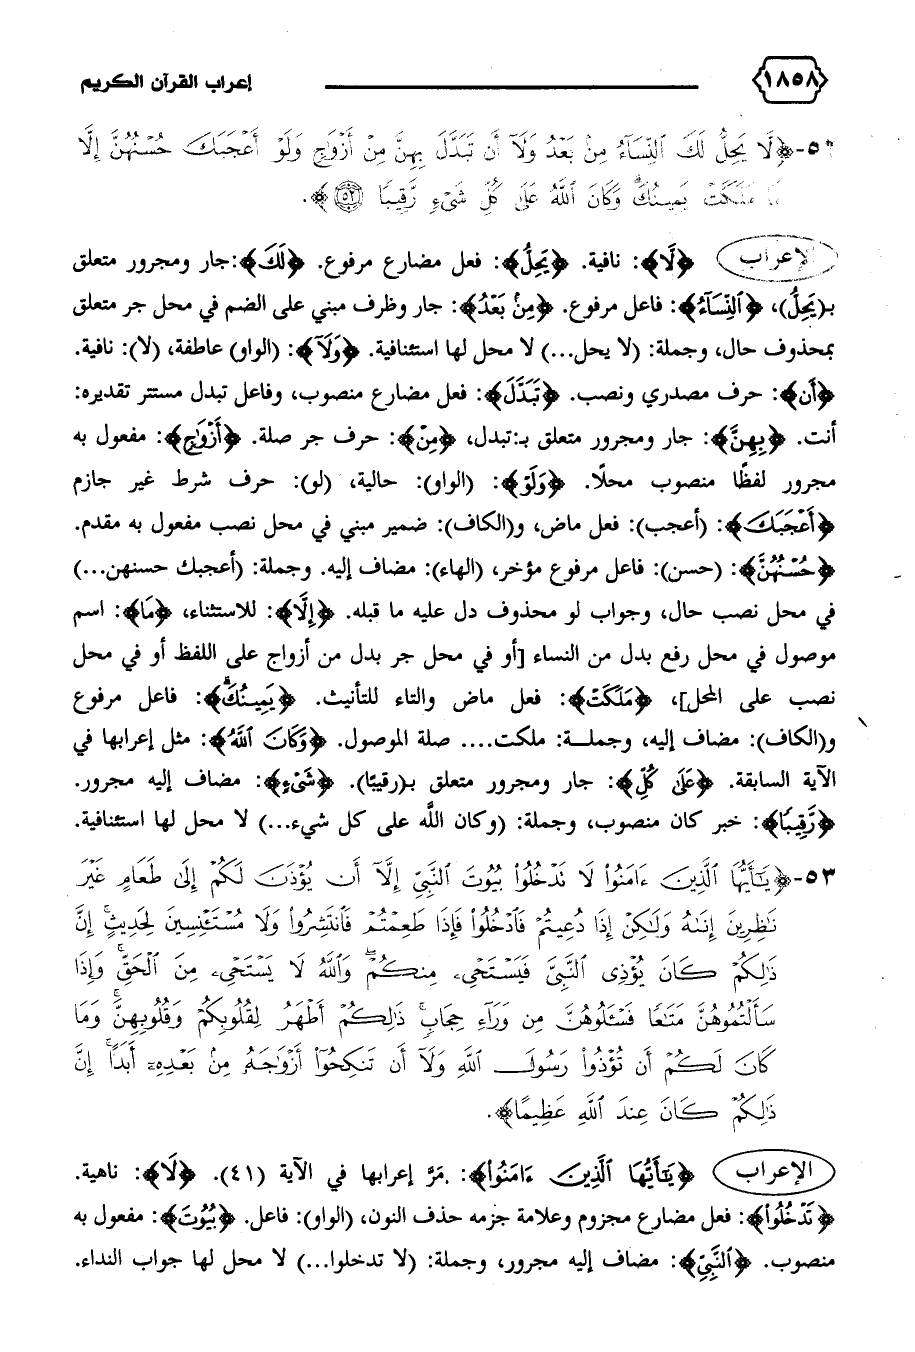 ١٨٥٨ إعراب القرآن الكريم
٥٢-﴿لَّا يَحِلُّ لَكَ ٱلنِّسَآءُ مِنۢ بَعْدُ وَلَآ أَن تَبَدَّلَ بِهِنَّ مِنْ أَزْوَٰجٍ وَلَوْ أَعْجَبَكَ حُسْنُهُنَّ إِلَّا
مَا مَلَكَتْ يَمِينُكَ ۗ وَكَانَ ٱللَّهُ عَلَىٰ كُلِّ شَىْءٍ رَّقِيبًا ٥٢﴾.
الإعراب ﴿لَّا﴾: نافية. ﴿يَحِلُّ﴾: فعل مضارع مرفوع. ﴿لَكَ﴾:جار ومجرور متعلق
بـ(يَحِلُّ)، ﴿ٱلنِّسَآءُ﴾: فاعل مرفوع. ﴿مِنۢ بَعْدُ﴾: جار وظرف مبني على الضم في محل جر متعلق
بمحذوف حال، وجملة: (لا يحل...) لا محل لها استئنافية. ﴿وَلَآ﴾: (الواو) عاطفة، (لا): نافية.
﴿أَن﴾: حرف مصدري ونصب. ﴿تَبَدَّلَ﴾: فعل مضارع منصوب، وفاعل تبدل مستتر تقديره:
أنت. ﴿بِهِنَّ﴾: جار ومجرور متعلق بـ:تبدل، ﴿مِنْ﴾: حرف جر صلة. ﴿أَزْوَٰجٍ﴾: مفعول به
مجرور لفظًا منصوب محلًا. ﴿وَلَوْ﴾: (الواو): حالية، (لو): حرف شرط غير جازم
﴿أَعْجَبَكَ﴾: (أعجب): فعل ماض، و(الكاف): ضمير مبني في محل نصب مفعول به مقدم.
﴿حُسْنُهُنَّ﴾: (حسن): فاعل مرفوع مؤخر، (الهاء): مضاف إليه. وجملة: (أعجبك حسنهن...)
في محل نصب حال، وجواب لو محذوف دل عليه ما قبله. ﴿إِلَّا﴾: للاستثناء، ﴿مَا﴾: اسم
موصول في محل رفع بدل من النساء [أو في محل جر بدل من أزواج على اللفظ أو في محل
نصب على المحل]، ﴿مَلَكَتْ﴾: فعل ماض والتاء للتأنيث. ﴿يَمِينُكَ ۗ﴾: فاعل مرفوع
و(الكاف): مضاف إليه، وجملـة: ملكت.... صلة الموصول. ﴿وَكَانَ ٱللَّهُ﴾: مثل إعرابها في
الآية السابقة. ﴿عَلَىٰ كُلِّ﴾: جار ومجرور متعلق بـ(رقيبًا). ﴿شَىْءٍ﴾: مضاف إليه مجرور.
﴿رَّقِيبًا﴾: خبر كان منصوب، وجملة: (وكان اللَّه على كل شيء...) لا محل لها استئنافية.
٥٣-﴿يَٰٓأَيُّهَا ٱلَّذِينَ ءَامَنُوا۟ لَا تَدْخُلُوا۟ بُيُوتَ ٱلنَّبِىِّ إِلَّآ أَن يُؤْذَنَ لَكُمْ إِلَىٰ طَعَامٍ غَيْرَ
نَٰظِرِينَ إِنَىٰهُ وَلَٰكِنْ إِذَا دُعِيتُمْ فَٱدْخُلُوا۟ فَإِذَا طَعِمْتُمْ فَٱنتَشِرُوا۟ وَلَا مُسْتَـْٔنِسِينَ لِحَدِيثٍ ۚ إِنَّ
ذَٰلِكُمْ كَانَ يُؤْذِى ٱلنَّبِىَّ فَيَسْتَحْىِۦ مِنكُمْ ۖ وَٱللَّهُ لَا يَسْتَحْىِۦ مِنَ ٱلْحَقِّ ۚ وَإِذَا
سَأَلْتُمُوهُنَّ مَتَٰعًا فَسْـَٔلُوهُنَّ مِن وَرَآءِ حِجَابٍ ۚ ذَٰلِكُمْ أَطْهَرُ لِقُلُوبِكُمْ وَقُلُوبِهِنَّ ۚ وَمَا
كَانَ لَكُمْ أَن تُؤْذُوا۟ رَسُولَ ٱللَّهِ وَلَآ أَن تَنكِحُوٓا۟ أَزْوَٰجَهُۥ مِنۢ بَعْدِهِۦٓ أَبَدًا ۚ إِنَّ
ذَٰلِكُمْ كَانَ عِندَ ٱللَّهِ عَظِيمًا﴾.
الإعراب ﴿يَٰٓأَيُّهَا ٱلَّذِينَ ءَامَنُوا۟﴾: مَرَّ إعرابها في الآية (٤١). ﴿لَا﴾: ناهية.
﴿تَدْخُلُوا۟﴾: فعل مضارع مجزوم وعلامة جزمه حذف النون، (الواو): فاعل. ﴿بُيُوتَ﴾: مفعول به
منصوب. ﴿ٱلنَّبِىِّ﴾: مضاف إليه مجرور، وجملة: (لا تدخلوا...) لا محل لها جواب النداء.